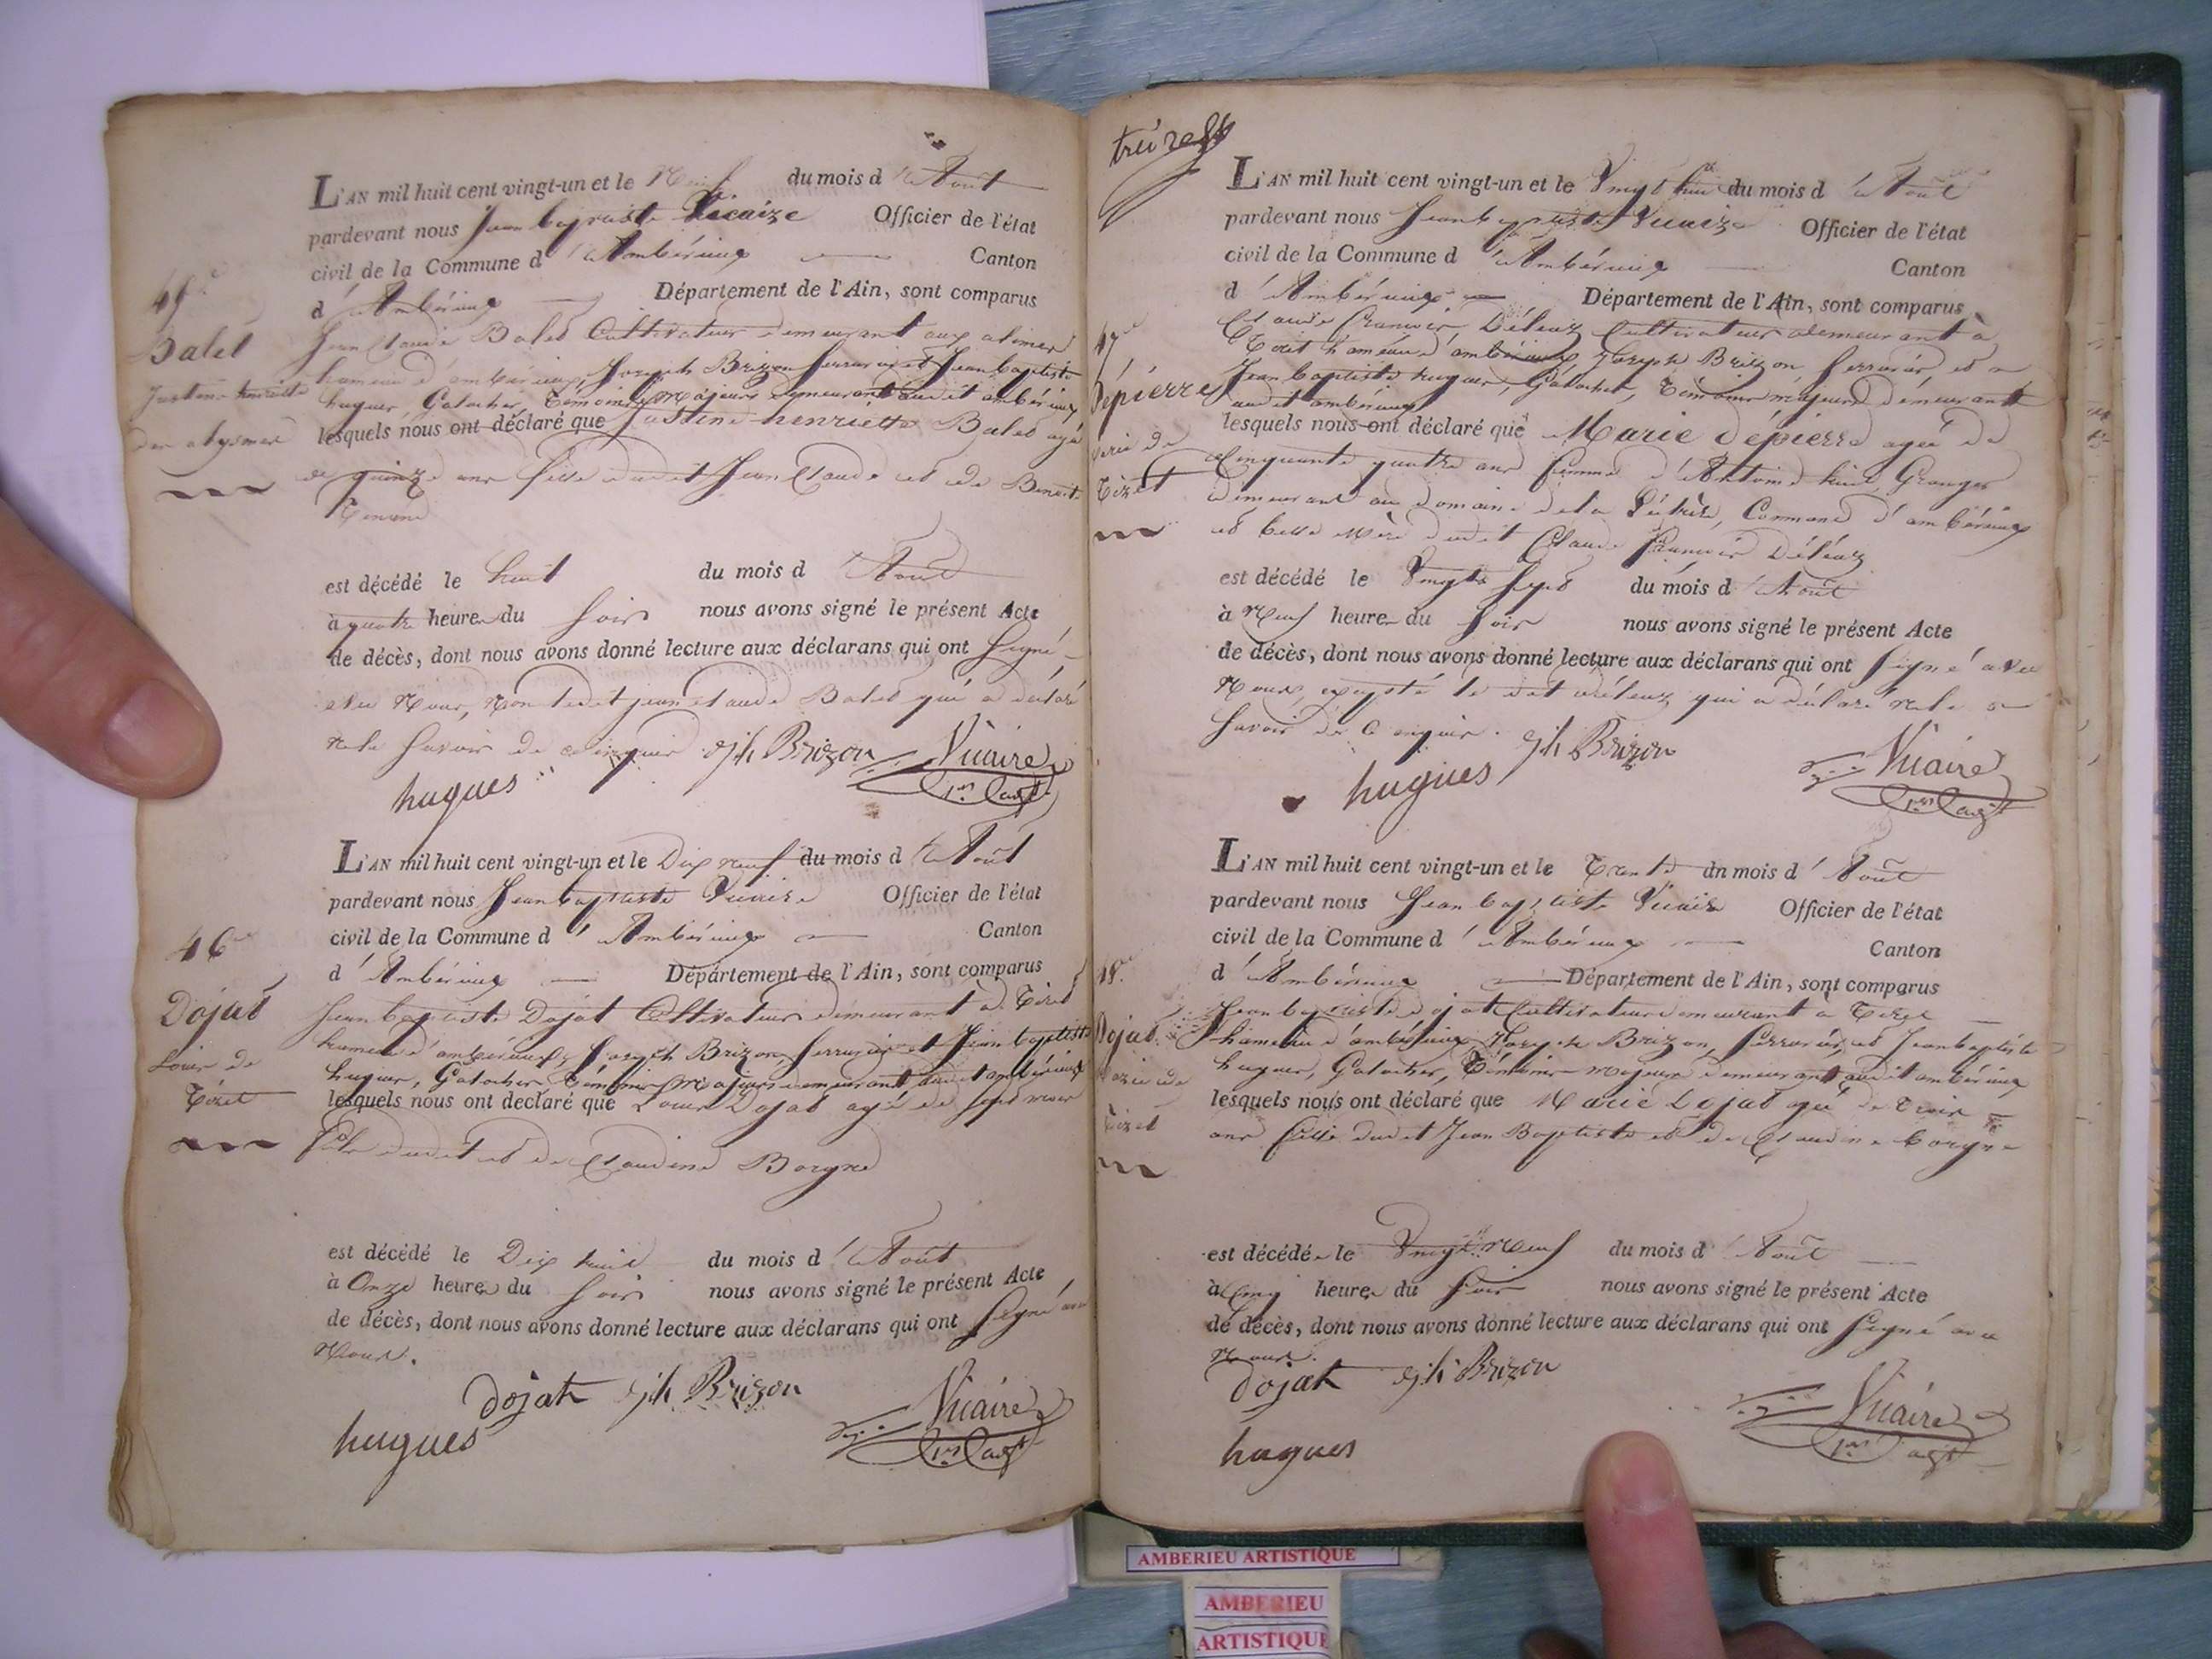 L'AN mil huit cent vingt-un et le Neuf du mois d'Août
pardevant nous Jean baptiste Vicaire Officier de l'état
civil de la Commune d'Ambérieux Canton
d'Ambérieux Département de l'Ain, sont comparus
45e
Balet
Justine henriette
des abymes
Jean Claude Balet Cultivateur demeurant aux abimes
hameau d'ambérieux, Joseph Brizon serrurier et Jean baptiste
hugues, Galocher, Témoins majeurs demeurant audit ambérieux
lesquels nous ont déclaré que Justine henriette Balet agé
de quinze ans fille dudit Jean Claude et de Benoite
est décédé le huit du mois d'Août
à quatre heure du soir nous avons signé le présent Acte
de décès, dont nous avons donné lecture aux déclarans qui ont Signé
avec Nous, Non ledit jean claude Balet qui a déclaré
ne le savoir de ce enquis. Jph Brizon Vicaire
hugues 1er adjt
L'AN mil huit cent vingt-un et le Dix neuf du mois d'Août
pardevant nous Jean baptiste Vicaire Officier de l'état
civil de la Commune d'Ambérieux Canton
d'Ambérieux Département de l'Ain, sont comparus
46e
Dojat
Louis de
Tiret
Jean baptiste Dojat Cultivateur demeurant à Tiret
hameau d'ambérieux, Joseph Brizon serrurier et Jean baptiste
hugues, Galocher, Témoins Majeurs demeurant audit ambérieux
lesquels nous ont declaré que Louis Dojat agé de sept mois
fils dudit et de Claudine Borgne
est décédé le Dix huit du mois d'Août
à Onze heure du soir nous avons signé le présent Acte
de décès, dont nous avons donné lecture aux déclarans qui ont Signé avec
Nous.
dojat Jph Brizon
hugues Vicaire
1er adjt
L'AN mil huit cent vingt-un et le Vingt huit du mois d'Août
pardevant nous Jean baptiste Vicaire Officier de l'état
civil de la Commune d'Ambérieux Canton
d'Ambérieux Département de l'Ain, sont comparus
47e
Dépierre
Marie de
Tiret
Claude François Déléaz Cultivateur demeurant à
Tiret hameau d'ambérieux, Joseph Brizon serrurier et
Jean baptiste hugues, Galocher, Témoins majeurs demeurants
audit ambérieux
lesquels nous ont déclaré que Marie dépierre agée de
Cinquante quatre ans femme d'Antoine Granger
demeurant au domaine de la Commune d'ambérieux
et belle mère dudit Claude François Déléaz
est décédé le Vingt Sept du mois d'Août
à Neuf heure du soir nous avons signé le présent Acte
de décès, dont nous avons donné lecture aux déclarans qui ont Signé avec
Nous, excepté le dit déléaz qui a déclaré ne le
savoir de ce enquis. Jph Brizon
hugues Vicaire
1er adjt
L'AN mil huit cent vingt-un et le Trente du mois d'Août
pardevant nous Jean baptiste Vicaire Officier de l'état
civil de la Commune d'Ambérieux Canton
d'Ambérieux Département de l'Ain, sont comparus
48e
Dojat
Marie de
Tiret
Jean baptiste dojat Cultivateur demeurant à Tiret
hameau d'ambérieux, Joseph Brizon, serrurier, et Jean baptiste
hugues, Galocher, Témoins majeurs demeurant audit ambérieux
lesquels nous ont déclaré que Marie Dojat agé de Trois
ans fille dudit Jean Baptiste et de Claudine borgne
est décédé le Vingt Neuf du mois d'Août
à Cinq heure du soir nous avons signé le présent Acte
de décès, dont nous avons donné lecture aux déclarans qui ont Signé avec
Nous.
dojat Jph Brizon
hugues Vicaire
1er adjt
AMBERIEU ARTISTIQUE
AMBERIEU
ARTISTIQUE